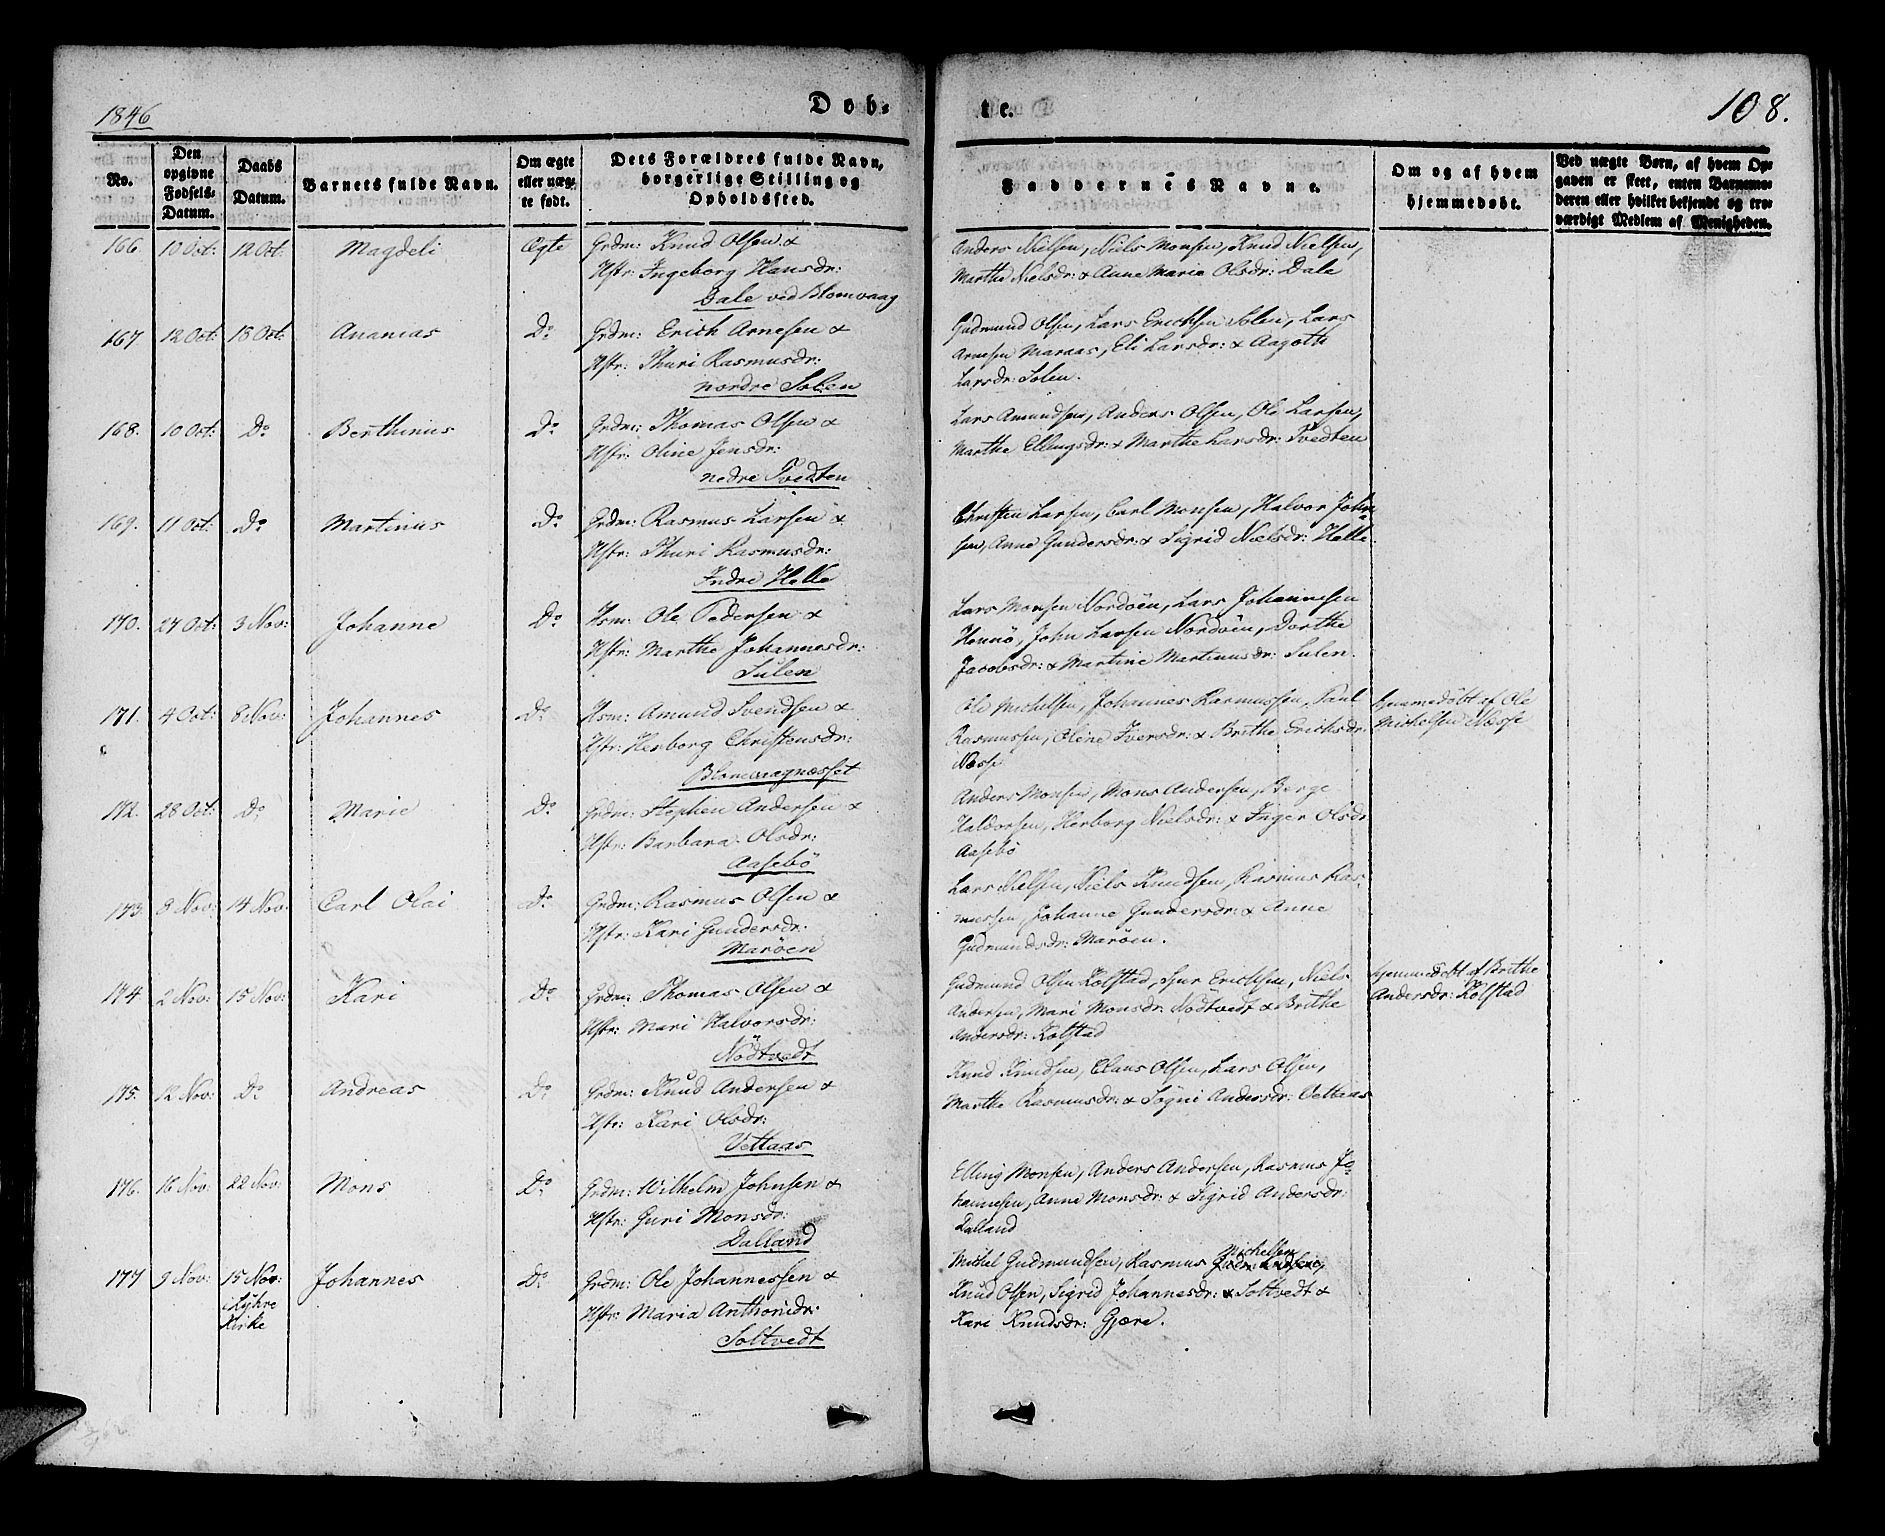 1846
Døb-
te.
108.
No.
Den opgivne Fødsels-Datum.
Daabs Datum.
Barnets fulde Navn.
Om ægte eller uæg-te født.
Dets Forældres fulde Navn, borgerlige Stilling og Opholdssted.
Faddernes Navne.
Om og af hvem hjemmedøbt.
Ved uægte Børn, af hvem Op-gaven er skeet, enten Barnemo-deren eller hvilket bekjendt og tro-værdigt Medlem af Menigheden.
166. 10 Oct: 12 Oct: Magdeli Ægte Grdm: Knud Olsen &
Hstr: Ingeborg Hansdr:
Dale ved Blomvaag
Anders Nielsen, Niels Monsen, Knud Nielsen,
Marthe Nielsdr: & Anne Maria Olsdr: Dale
167 12 Oct: 18 Oct: Ananias Do Grdm: Erich Arnesen &
Hstr: Thuri Rasmusdr:
nordre Solen
Gudmund Olsen, Lars Ericksen Solen, Lars
Arnesen Maraas, Eli Larsdr: & Aagothe
Larsdr: Solen.
168. 10 Oct: Do Berthinius Do Grdm: Thomas Olsen &
Hstr: Oline Jensdr:
nedre Tvedten
Lars Amundsen, Anders Olsen, Ole Larsen,
Marthe Ellingsdr: & Marthe Larsdr: Tvedten
169. 11 Oct: Do Martinus Do Grdm: Rasmus Larsen &
Hstr: Thuri Rasmusdr:
Indre Helle
Christen Larsen, Carl Monsen, Halvor Johan-
sen, Anne Gundersdr: & Sigrid Nielsdr: Helle.
170. 27 Oct: 3 Nov: Johanne Do Hsm: Ole Pedersen &
Hstr: Marthe Johannesdr:
Sulen
Lars Monsen Nordöen, Lars Johannesen
Hennö, John Larsen Nordöen, Dorthe
Jacobsdr: & Martine Martinusdr: Sulen.
171. 4 Oct: 8 Nov: Johannes Do Hsm: Amund Svendsen &
Hstr: Herborg Christensdr:
Blomvaagnesset
Ole Michelsen, Johannes Rasmussen, Paul
Rasmussen, Oline Iversdr: & Brithe Ericksdr:
Nesse
hjemmedöbt af Ole
Michelsen Nesse
172. 28 Oct: Do Marie Do Grdm: Stephen Andersen &
Hstr: Barbara Olsdr:
Aasebö
Anders Monsen, Mons Andersen, Berge
Haldorsen, Herborg Nielsdr: & Inger Olsdr
Aasebö
173. 8 Nov: 14 Nov: Carl Olai Do Grdm: Rasmus Olsen &
Hstr: Kari Gundersdr:
Maröen
Lars Nielsen, Niels Knudsen, Rasmus Ras-
mussen, Johanne Gundersdr: & Anne
Gudmundsdr: Maröen.
174 2 Nov: 15 Nov: Kari Do Grdm: Thomas Olsen &
Hstr: Mari Halvorsdr:
Nödtvedt
Gudmund Olsen Kolstad, Sjur Ericksen, Niels
Andersen, Mari Monsdr: Nödtvedt & Brithe
Andersdr: Kolstad
hjemmedöbt af Brithe
Andersdr: Kolstad
175. 12 Nov: Do Andreas Do Grdm: Knud Andersen &
Hstr: Kari Olsdr:
Vettaas
Knud Knudsen, Claus Olsen, Lars Olsen,
Marthe Rasmusdr: & Sögni Andersdr: Vettaas
176. 16 Nov: 22 Nov: Mons Do Grdm: Wilhelm Johnsen &
Hstr: Guri Monsdr:
Dalland
Elling Monsen, Anders Andersen, Rasmus Jo-
hannesen, Anne Monsdr: & Sigrid Andersdr:
Dalland
177 9 Nov: 15 Nov: i Lyhre Kirke Johannes Do Grdm: Ole Johannessen &
Hstr: Maria Anthonidr:
Soltvedt
Michel Gudmundsen, Rasmus Michelsen,
Knud Olsen, Sigrid Johannesdr: Soltvedt &
Kari Knudsdr: Gjære.